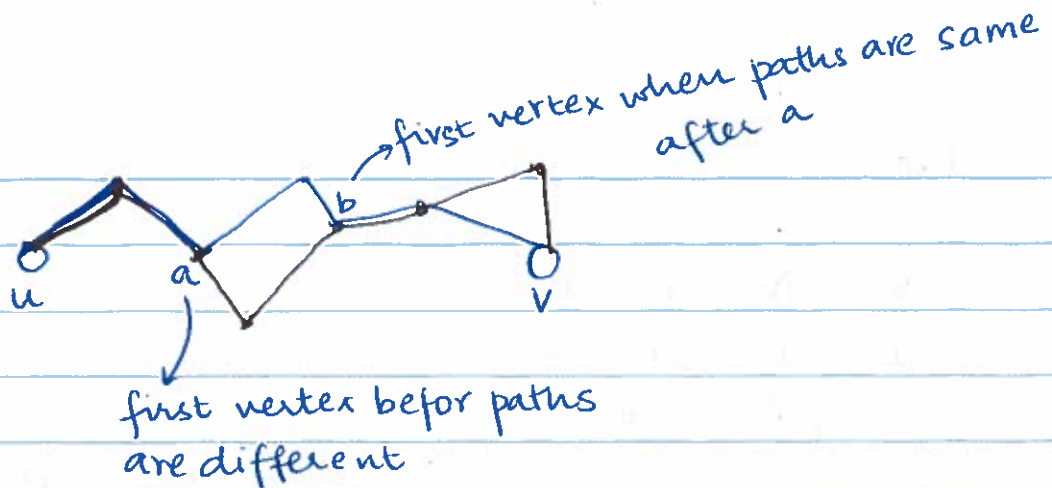 first vertex when paths are same
after a
b
a
u
v
first vertex befor paths
are different